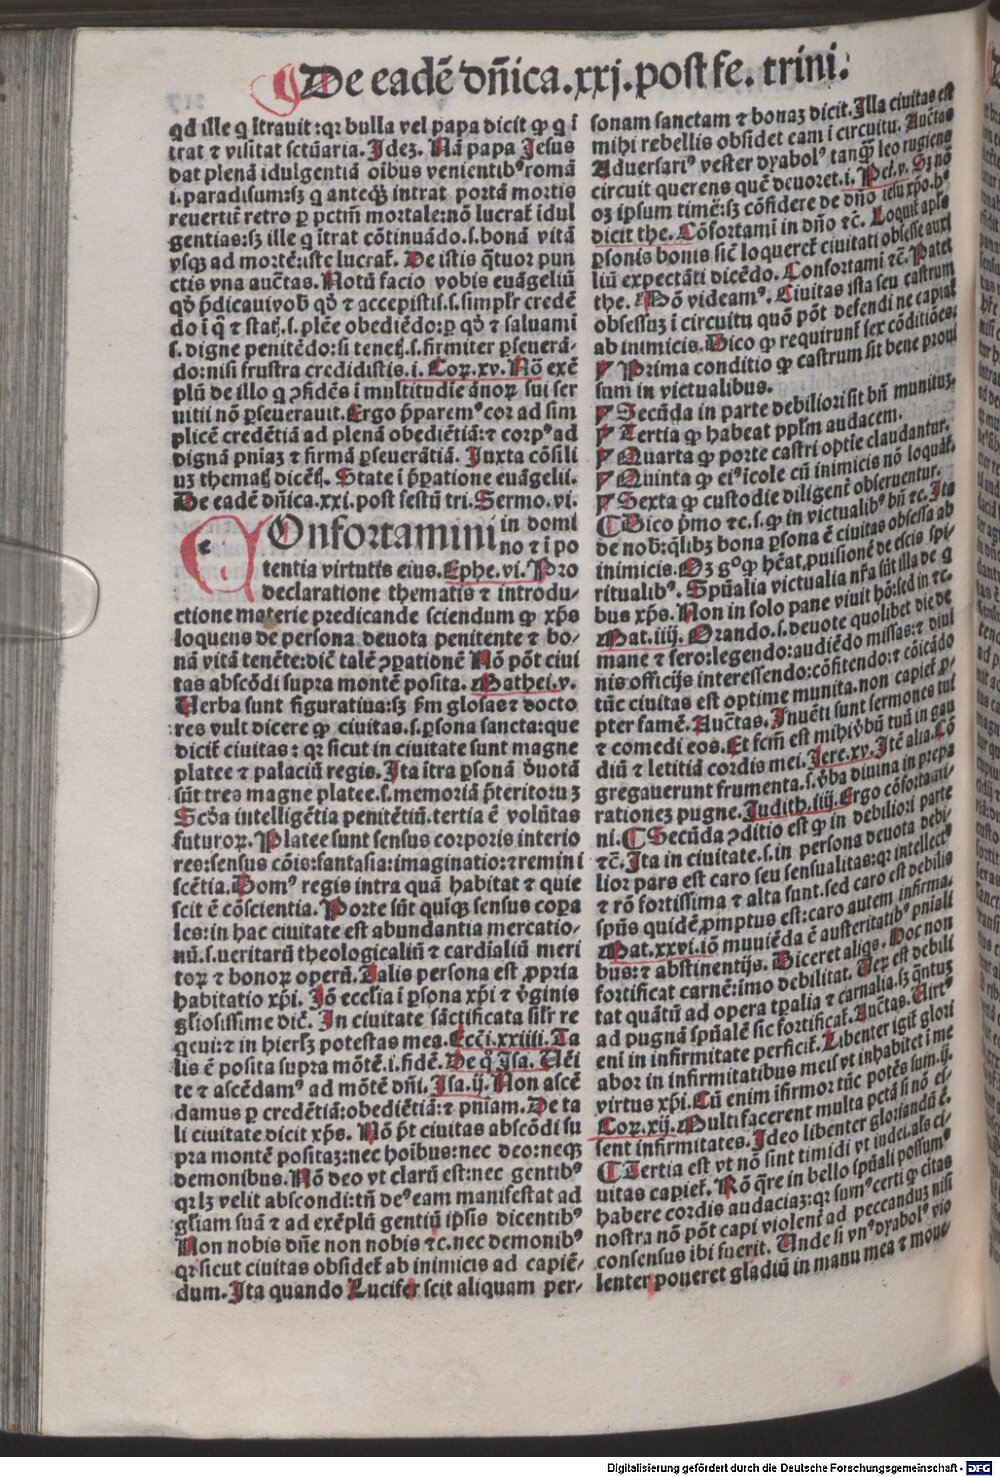 De eadē dñica.xxj.post fe. trini.
qd ille q ītrauit:qr bulla vel papa dicit ꝙ q ī
trat ⁊ visitat sctūaria. Ideꝫ. Nā papa Jesus
dat plenā idulgentiā oībus venientibꝰ romā
i.paradisum:sꝫ q anteqꝫ intrat portā mortis
reuertit̄ retro ꝑ pctm̄ mortale:nō lucrat̄ idul
gentias:sꝫ ille q ītrat cōtinuādo.s.bonā vitā
vsqꝫ ad mortē:iste lucrat̄. De istis q̄tuor pun
ctis vna auctas. Notū facio vobis euāgeliū
qd̄ p̄dicaui vob̄ qd̄ ⁊ accepistis.s.simplr̄ credē
do ī q̄ ⁊ statꝭ.s.plēe obediēdo:ꝑ qd̄ ⁊ saluamī
s.digne penitēdo:si tenetꝭ.s.firmiter ꝑseuerā-
do:nisi frustra credidistis.i.Coꝝ.xv. Nō exē
plū de illo q ꝯfidēs ī multitudīe ānoꝝ sui ser
uitii nō ꝑseuerauit. Ergo p̄paremꝰ cor ad sim
plicē credētiā ad plenā obediētiā:⁊ corpꝰ ad
dignā pniaꝫ ⁊ firmā ꝑseuerātiā. Juxta cōsili
uꝫ thematꝭ dicētꝭ. State ī p̄ꝑatione euāgelii.
De eadē dñica.xxi.post festū tri.Sermo.vi.
COnfortamini in domi
no ⁊ ī po
tentia virtutis eius.Ephe.vi. Pro
declaratione thematis ⁊ introdu-
ctione materie predicande sciendum ꝙ xp̄s
loquens de persona deuota penitente ⁊ bo-
nā vitā tenēte:dic̄ talē ꝯꝑationē Nō pōt ciui
tas abscōdi supra montē posita. Mathei.v.
Uerba sunt figuratiua:sꝫ fm̄ glosas ⁊ docto
res vult dicere ꝙ ciuitas.s.ꝑsona sancta:que
dicit̄ ciuitas: qr sicut in ciuitate sunt magne
platee ⁊ palaciū regis. Ita ītra ꝑsonā d̓uotā
sūt tres magne platee.s.memoriā p̄teritoruꝫ
Scd̓a intelligētia penitētiū.tertia ē volūtas
futuroꝝ. Platee sunt sensus corporis interio
res:sensus cōis:fantasia:imaginatio:⁊remini
scētia. Domꝰ regis intra quā habitat ⁊ quie
scit ē cōscientia. Porte sūt quiqꝫ sensus corpa
les:in hac ciuitate est abundantia mercatio-
nū.s.ueritarū theologicaliū ⁊ cardialiū meri
toꝝ ⁊ bonoꝝ operū. Talis persona est ꝓpria
habitatio xp̄i. Jō ecclīa ī ꝑsona xp̄i ⁊ v̓ginis
gl̓iosissime dic̄. In ciuitate sāctificata silr̄ re
qeui:⁊ in hierlꝫ potestas mea.Ecci.xxiiii. Ta
lis ē posita supra mōtē.i.fidē. De q̄ Jsa. Uēi
te ⁊ ascēdamꝰ ad mōtē dn̄i.Jsa.ij. Non ascē
damus ꝑ credētiā:obediētiā:⁊ pniam. De ta
li ciuitate dicit xp̄s. Nō p̄t ciuitas abscōdi su
pra montē positaꝫ:nec hoībus:nec deo:neqꝫ
demonibus. Nō deo vt clarū est:nec gentibꝰ
qr lꝫ velit abscondi:tn̄ deꝰ eam manifestat ad
gl̓iam suā ⁊ ad exēplū gentiū ip̄sis dicentibꝰ
Non nobis dn̄e non nobis ⁊c.nec demonibꝰ
qr sicut ciuitas obsidet̄ ab inimicis ad capiē-
dum. Ita quando Lucifer scit aliquam per-
sonam sanctam ⁊ bonaꝫ dicit. Illa ciuitas est
mihi rebellis obsidet eam ī circuitu. Auctas
Aduersariꝰ vester dyabolꝰ tanqꝫ leo rugiens
circuit querens quē deuoret.i. Pet.v. Sꝫ nō
oꝫ ipsum timē:sꝫ cōfidere de dn̄o iesu xp̄o.hꝰ
dicit the. Cōfortamī in dn̄o ⁊c. Loquit̄ apl̓s
ꝑsonis bonis sic̄ loqueret̄ ciuitati obsesse auxi
liū expectāti dicēdo. Confortamī ⁊c̄. Patet
the. Mō videamꝰ. Ciuitas ista seu castrum
obsessuꝫ ī circuitu quō pōt defendi ne capiat̄
ab inimicis. Dico ꝙ requirunt̄ sex cōditiōes:
Prima conditio ꝙ castrum sit bene proui
sum in victualibus.
Secūda in parte debiliori sit bn̄ munituꝫ.
Tertia ꝙ habeat ppl̓m audacem.
Quarta ꝙ porte castri optīe claudantur.
Quinta ꝙ eiꝰ īcole cū inimicis nō loquāt̄.
Sexta ꝙ custodie diligent̄ obseruentur.
Dico p̄mo ⁊c.s.ꝙ in victualibꝰ bn̄ ⁊c. Ita
de nob̄:qlibꝫ bona ꝑsona ē ciuitas obsessa ab
inimicis. Oꝫ gꝰ ꝙ hēat ꝓuisionē de escis spi-
ritualibꝰ. Spūalia victualia nr̄a sūt illa de q
bus xp̄s. Non in solo pane viuit hō:sed in ⁊c.
Mat.iiij. Orando.s.deuote quolibet die de
mane ⁊ sero:legendo:audiēdo missas:⁊ diui
nis officijs interessendo:cōfitendo:⁊ cōicādo
tūc ciuitas est optime munita.non capiet̄ ꝓ-
pter famē. Auctas. Inuēti sunt sermones tui
⁊ comedi eos. Et fcm̄ est mihi v̓bū tuū in gau
diū ⁊ letitiā cordis mei. Jere.xv. Itē alia. Cō
gregauerunt frumenta.s.v̓ba diuina in prepa
rationeꝫ pugne. Judith.iiij. Ergo cōfortami-
ni. Secūda ꝯditio est ꝙ in debiliori parte
⁊c̄. Ita in ciuitate.s.in persona deuota debi-
lior pars est caro seu sensualitas:qr intellectꝰ
⁊ rō fortissima ⁊ alta sunt.sed caro est debilis
spūs quidē ꝓmptus est:caro autem infirma.
Mat.xxvi.iō muniēda ē austeritatibꝰ pniali
bus:⁊ abstinentijs. Diceret aliqs. Hoc non
fortificat carnē:imo debilitat. Ueꝝ est debili
tat quātū ad opera tꝑalia ⁊ carnalia.sꝫ q̄ntuꝫ
ad pugnā spūalē sic fortificat̄. Auctas. Uirtꝰ
eni in infirmitate perficit̄. Libenter igit̄ glori
abor in infirmitatibus meis vt inhabitet ī me
virtus xp̄i. Cū enim īfirmor tūc potēs sum.ij.
Coꝝ.xij. Multi facerent multa pctā si nō es-
sent infirmitates. Ideo libenter gloriandū ē.
Tertia est vt nō sint timidi vt iudei.als ci-
uitas capiet̄. Rō q̄re in bello spūali possumꝰ
habere cordis audaciaꝫ:qr sumꝰ certi ꝙ ciuitas
nostra nō pōt capi violent̄ ad peccanduꝫ nisi
consensus ibi fuerit. Unde si vnꝰ dyabolꝰ vio
lenter poneret gladiū in manu mea ⁊ moue
Digitalisierung gefördert durch die Deutsche Forschungsgemeinschaft - DFG